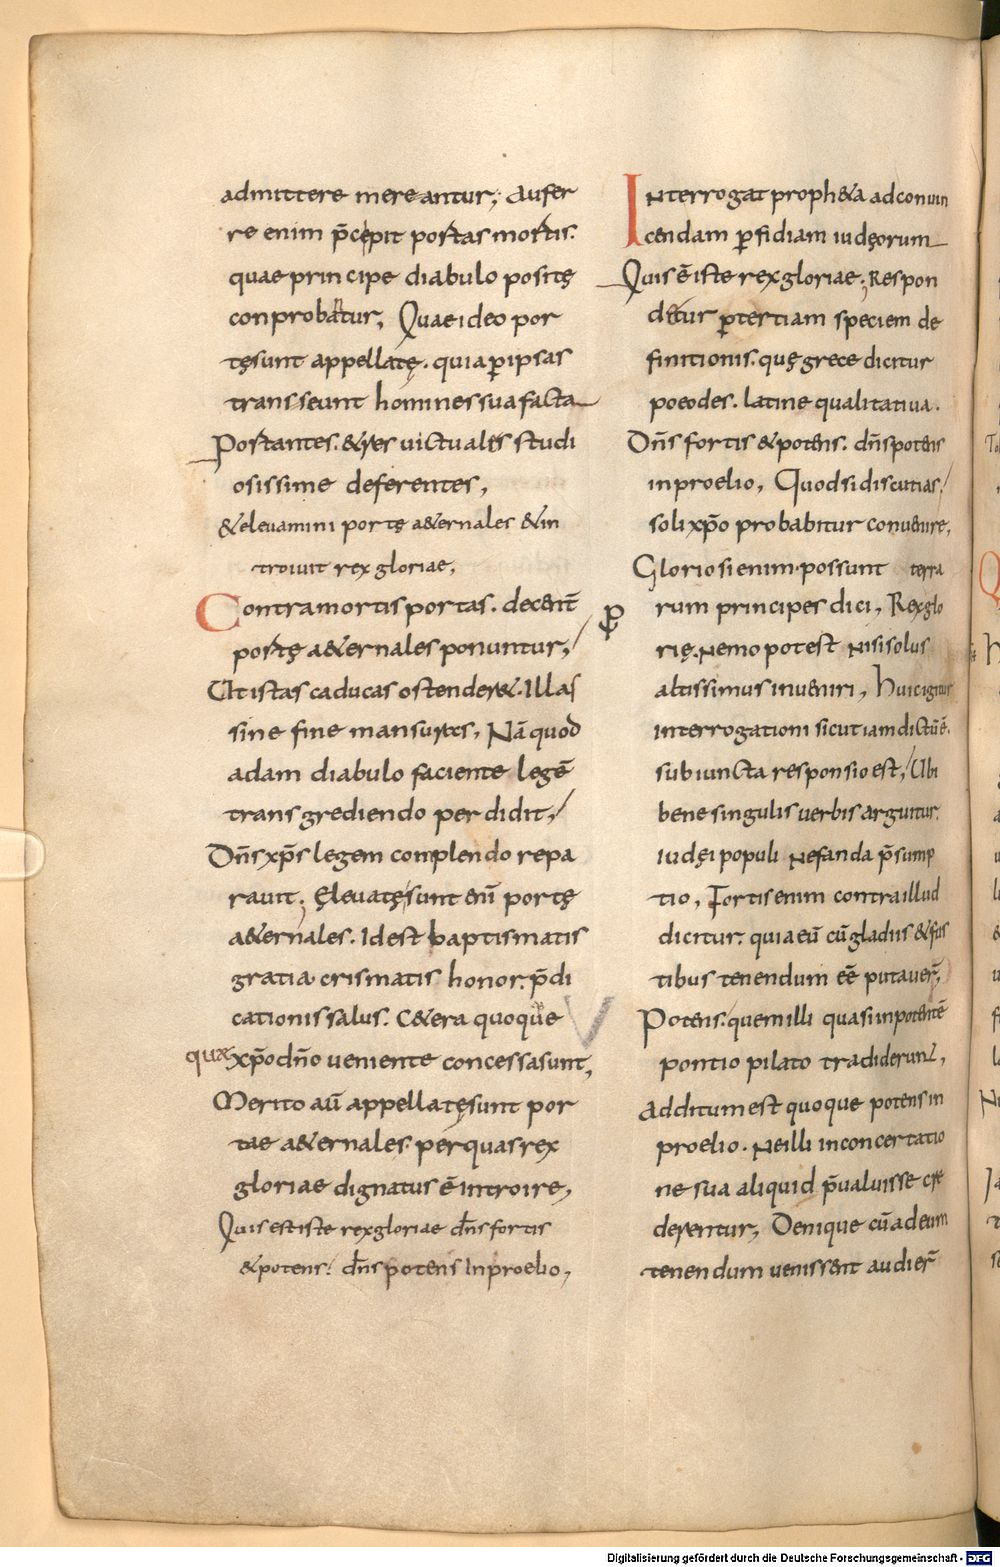 admittere mereantur; Aufer
re enim p̄cepit portas mortis.
quae principe diabulo positę
conprobatur, Quae ideo por
tęsunt appellatę. quia ꝑipsas
transseunt homines sua facta
Portantes. &res uictuales studi
osissime deferentes,
&eleuamini portę a&ernales &in
troiuit rex gloriae,
Contra mortis portas. decent̄
portę a&ernales ponuntur,
Ut istas caducas ostender&. Illas
sine fine mansuras, Nā quod
adam diabulo faciente legē
transgrediendo perdidit,
Dn̄s xp̄s legem complendo repa
rauit; Eleuatęsunt eni͂ portę
a&ernales. Id est baptismatis
gratia crismatis honor. p̄di
cationis salus. C&era quoque
quae xp̄o dn̄o ueniente concessa sunt,
Merito au͂ appellatęsunt por
tae a&ernales per quas rex
gloriae dignatus ē introire,
Quis est iste rex gloriae dn̄s fortis
&potens. dn̄s potens In proelio,
Interrogat proph&a ad conuin
cendam ꝑfidiam iudęorum
Quis ē iste rex gloriae; Respon
ditur ꝑ tertiam speciem de
finitionis. quę grece dicitur
poeodes. latine qualitatiua.
Dn̄s fortis &potens. dn̄s potens
in proelio, Quod si discutias,
soli xp̄o probabitur conuenire,
Gloriosi enim possunt terra
rum principes dici, Rex glo
rię. Nemo potest Nisi solus
altissimus inueniri, Huic igitur
interrogationi sicut iam dictū ē.
subiuncta responsio est, Ubi
bene singulis uerbis arguitur.
iudęi populi Nefanda p̄sump
tio, Fortis enim contra illud
dicitur. quia eū cū gladiis &fus
tibus tenendum eē putauer̄,
Potens. quem illi quasi inpotentē
pontio pilato tradiderunt,
Additum est quoque potens in
proelio. Ne illi in concertatio
ne sua aliquid p̄ualuisse cre
derentur, Denique cū ad eum
tenendum uenissent audier̄
Digitalisierung gefördert durch die Deutsche Forschungsgemeinschaft - DFG